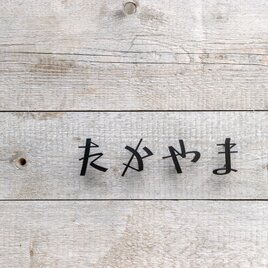 たかやま